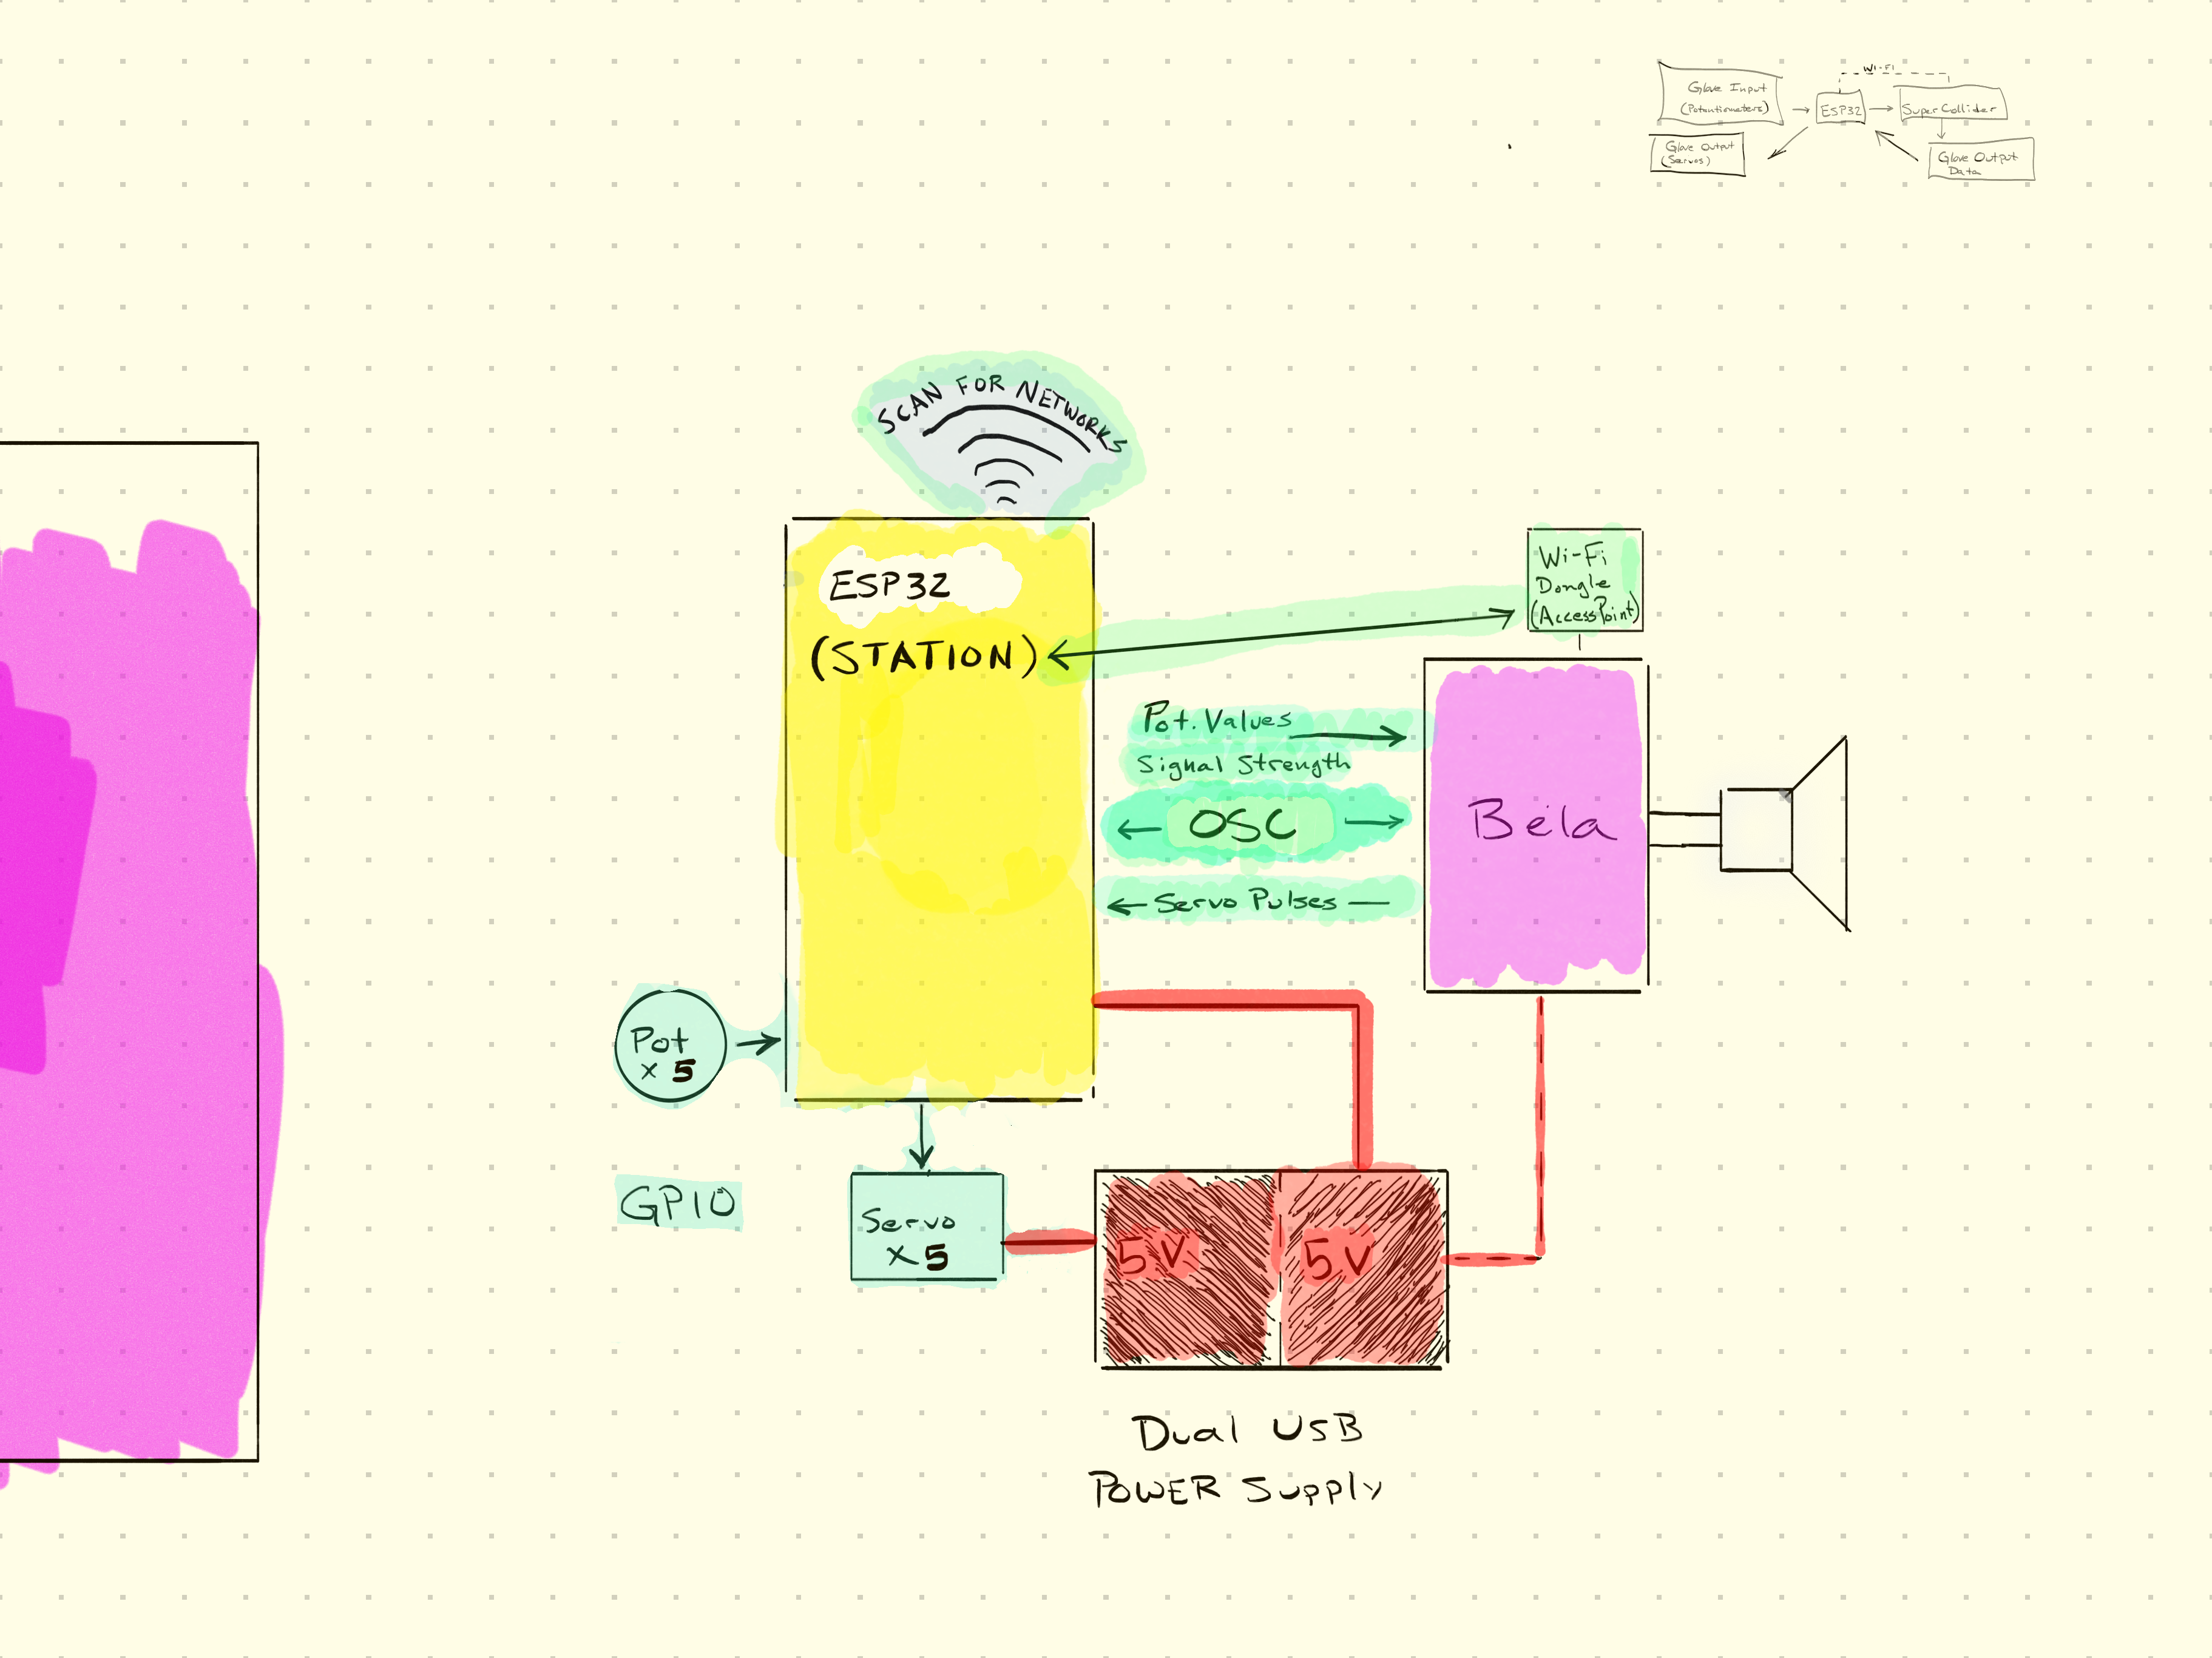 Wi-Fi
Glove Input
(Potentiometers)
ESP32
SuperCollider
Glove Output
(Servos)
Glove Output
Data
SCAN FOR NETWORKS
ESP32
(STATION)
Wi-Fi
Dongle
(AccessPoint)
Pot. Values
Signal Strength
OSC
Servo Pulses
Bela
Pot
x 5
GPIO
Servo
x5
5V
5V
Dual USB
POWER Supply